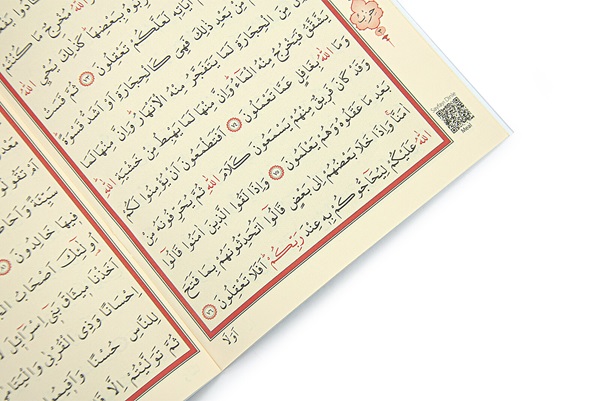 اللّٰهُ مُخْرِجٌ مَا كُنْتُمْ
بِبَعْضِهَا كَذٰلِكَ يُحْيِي اللّٰهُ
لَعَلَّكُمْ تَعْقِلُونَ ٧٣ ثُمَّ قَسَتْ
مِنْ بَعْدِ ذٰلِكَ فَهِيَ كَالْحِجَارَةِ اَوْ اَشَدُّ قَسْوَةً
مِنَ الْحِجَارَةِ لَمَا يَتَفَجَّرُ مِنْهُ الْاَنْهَارُ وَاِنَّ مِنْهَا لَمَا
يَشَّقَّقُ فَيَخْرُجُ مِنْهُ الْمَاءُ وَاِنَّ مِنْهَا لَمَا يَهْبِطُ مِنْ خَشْيَةِ اللّٰهِ
وَمَا اللّٰهُ بِغَافِلٍ عَمَّا تَعْمَلُونَ ٧٤ اَفَتَطْمَعُونَ اَنْ يُؤْمِنُوا لَكُمْ
وَقَدْ كَانَ فَرِيقٌ مِنْهُمْ يَسْمَعُونَ كَلَامَ اللّٰهِ ثُمَّ يُحَرِّفُونَهُ مِنْ
بَعْدِ مَا عَقَلُوهُ وَهُمْ يَعْلَمُونَ ٧٥ وَاِذَا لَقُوا الَّذِينَ اٰمَنُوا قَالُوا
اٰمَنَّا وَاِذَا خَلَا بَعْضُهُمْ اِلٰى بَعْضٍ قَالُوا اَتُحَدِّثُونَهُمْ بِمَا فَتَحَ
اللّٰهُ عَلَيْكُمْ لِيُحَاجُّوكُمْ بِهِ عِنْدَ رَبِّكُمْ اَفَلَا تَعْقِلُونَ ٧٦
اَوَلَا
حزب
Sayfayı Dinle
Meal
سَيِّئَةً
فِيهَا خَالِدُونَ
اُولٰئِكَ اَصْحَابُ
اَخَذْنَا مِيثَاقَ بَنِي اِسْرَائِيلَ
اِحْسَانًا وَذِي الْقُرْبٰى
لِلنَّاسِ حُسْنًا وَاَقِيمُوا
ثُمَّ تَوَلَّيْتُمْ اِلَّا